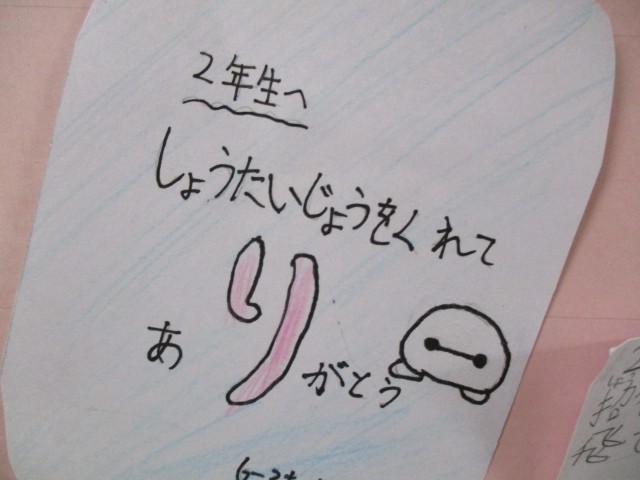 2年生へ
しょうたいじょうをくれて
ありがとう